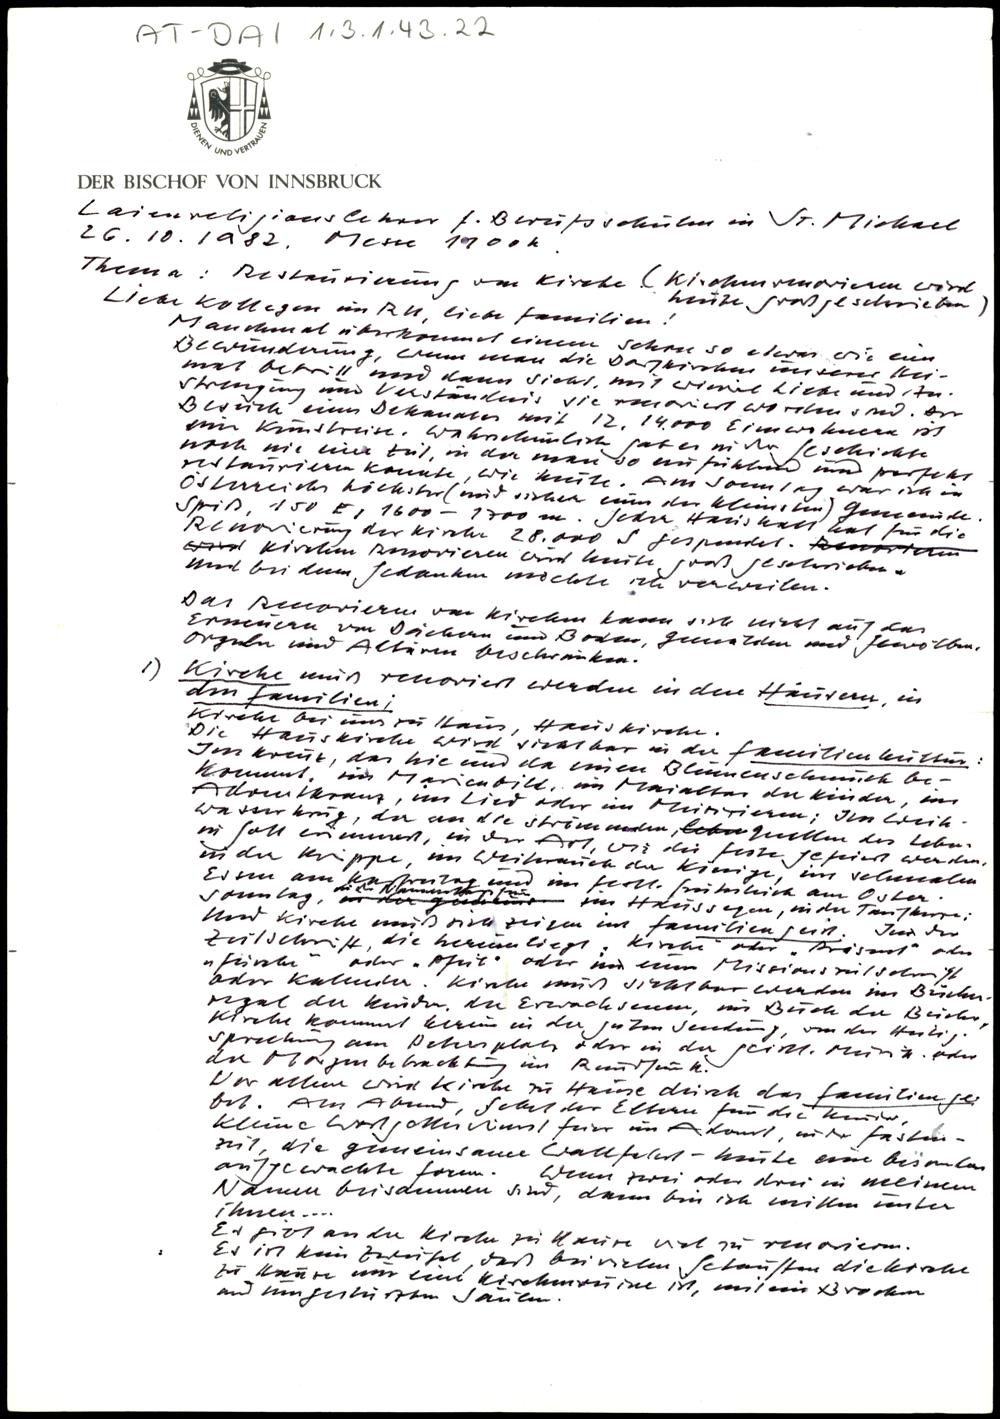 AT-DAI 1.3.1.43.22
DIENEN UND VERTRAUEN
DER BISCHOF VON INNSBRUCK
Laienreligionslehrer f. Berufsschulen in St. Michael
26. 10. 1982. Messe 1700h
Thema: Restaurierung von Kirche (Kirchenrenovieren wird
heute großgeschrieben)
Liebe Kollegen im RU, liebe Familien!
Manchmal überkommt einem schon so etwas wie ein
Bewunderung, wenn man die Dorfkirchen unserer Hei-
mat betritt und dann sieht, mit wieviel Liebe und An-
strengung und Verständnis sie renoviert worden sind. Der
Besuch eines Dekanates mit 12, 14.000 Einwohnern ist
eine Kunstreise. Wahrscheinlich gab es in der Geschichte
noch nie eine Zeit, in der man so einfühlend und perfekt
restaurieren konnte, wie heute. Am Sonntag war ich in
Österreichs höchster (und sicher einer der kleinsten) Gemeinde.
Spiß, 150 E, 1600 - 1700 m. Jeder Haushalt hat für die
Renovierung der Kirche 28.000 S gespendet. Renovieren
wird Kirchen Renovieren wird heute groß geschrieben.
Und bei dem Gedanken möchte ich verweilen.
Das Renovieren von Kirchen kann sich nicht auf das
Erneuern von Dächern und Böden, Gemälden und Gewölben,
Orgeln und Altären beschränken.
1) Kirche muß renoviert werden in den Häusern, in
den Familien;
Kirche bei uns zu Haus, Hauskirche.
Die Hauskirche wird sichtbar in der Familienkultur:
Im Kreuz, das hie und da einen Blumenschmuck be-
kommt, im Marienbild, im Maialtar der Kinder, im
Adventkranz, im Lied oder im Musizieren; Im Weih-
wasserkrug, der an die strömenden, Quellen des Leben
in Gott erinnert, in der Art, wie die Feste gefeiert werden.
in der Krippe, im Weihrauch der Könige, im schmalen
Essen am Karfreitag und im festl. Frühstück am Oster-
sonntag, im Haussegen, in der Taufkerze;
Und Kirche muß sich zeigen im Familiengeist. In der
Zeitschrift, die herumliegt, "Kirche" oder "Präsent" oder
"Furche" oder "Pfeil" oder in einer Missionszeitschrift
oder Kalender. Kirche muß sichtbar werden im Bücher-
regal der Kinder, der Erwachsenen, im Buch der Bücher,
Kirche kommt herein in der guten Sendung, von der Heilig-
sprechung am Petersplatz oder in der geistl. Musik oder
der Morgenbetrachtung im Rundfunk.
Vor allem wird Kirche zu Hause durch das Familienge
bet. Am Abend, Gebet der Eltern für die Kinder,
kleine Wortgottesdienst feier im Advent, in der Fasten-
zeit, die gemeinsame Wallfahrt - heute eine besonders
aufgewachte Form. Wenn zwei oder drei in meinem
Namen beisammen sind, dann bin ich mitten unter
ihnen....
Es gibt an der Kirche zu Hause viel zu renovieren.
Es ist kein Zweifel, daß bei vielen Getauften die Kirche
zu Hause nur eine Kirchenruine ist, mit ein Brocken
und umgestürzten Säulen.